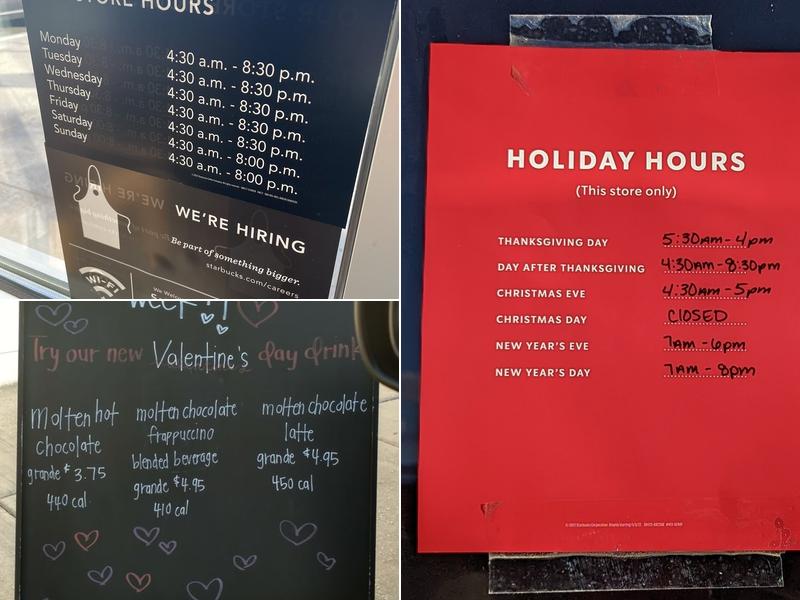 STORE HOURS
Monday 4:30 a.m. - 8:30 p.m.
Tuesday 4:30 a.m. - 8:30 p.m.
Wednesday 4:30 a.m. - 8:30 p.m.
Thursday 4:30 a.m. - 8:30 p.m.
Friday 4:30 a.m. - 8:30 p.m.
Saturday 4:30 a.m. - 8:00 p.m.
Sunday 4:30 a.m. - 8:00 p.m.
WE'RE HIRING
Be part of something bigger.
starbucks.com/careers
WI-FI
HOLIDAY HOURS
(This store only)
THANKSGIVING DAY 5:30am - 4pm
DAY AFTER THANKSGIVING 4:30am - 8:30pm
CHRISTMAS EVE 4:30am - 5pm
CHRISTMAS DAY ClOSED
NEW YEAR'S EVE 7am - 6pm
NEW YEAR'S DAY 7am - 8pm
week!!
Try our new Valentine's day drink
Molten hot
chocolate
grande $3.75
440 cal
molten chocolate
frappuccino
blended beverage
grande $4.95
410 cal
molten chocolate
latte
grande $4.95
450 cal